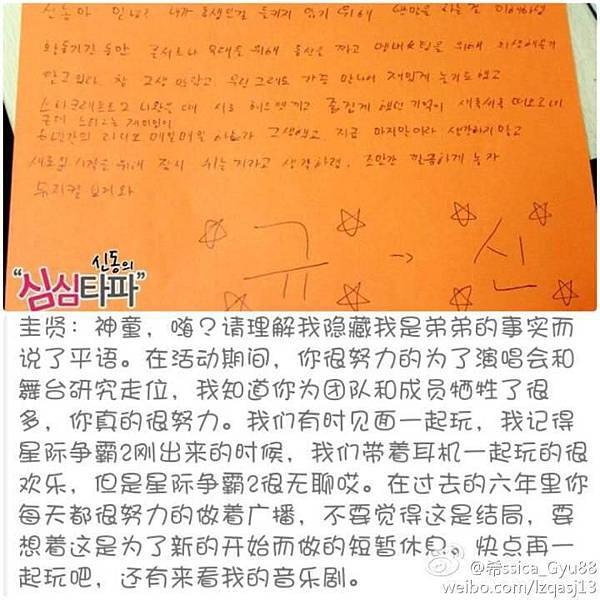 신동아 안녕? 내가 동생인걸 들키지 않기 위해 반말을 하는걸 이해하렴
활동기간 동안 콘서트나 무대를 위해 동선을 짜고 멤버&팀을 위해 희생해준거
알고있다. 참 고생 많았고 우린 그래도 가끔 만나서 재밌게 놀기도 했고
스타크래프트2 나왔을 때 서로 헤드셋끼고 즐겁게 했던 기억이 새록새록 떠오르네
근데 스타2는 재미없어
6년간의 라디오 매일매일 하느라 고생했고 지금 마지막이라 생각하지말고
새로운 시작을 위해 잠시 쉬는거라고 생각하렴. 조만간 깔끔하게 놀자
뮤지컬 보러와
규 → 신
신동의
“심심타파”
圭贤：神童，嗨？请理解我隐藏我是弟弟的事实而
说了平语。在活动期间，你很努力的为了演唱会和
舞台研究走位，我知道你为团队和成员牺牲了很
多，你真的很努力。我们有时见面一起玩，我记得
星际争霸2刚出来的时候，我们带着耳机一起玩的很
欢乐，但是星际争霸2很无聊哎。在过去的六年里你
每天都很努力的做着广播，不要觉得这是结局，要
想着这是为了新的开始而做的短暂休息。快点再一
起玩吧，还有来看我的音乐剧。
@希ssica_Gyu88
weibo.com/lzqasj13